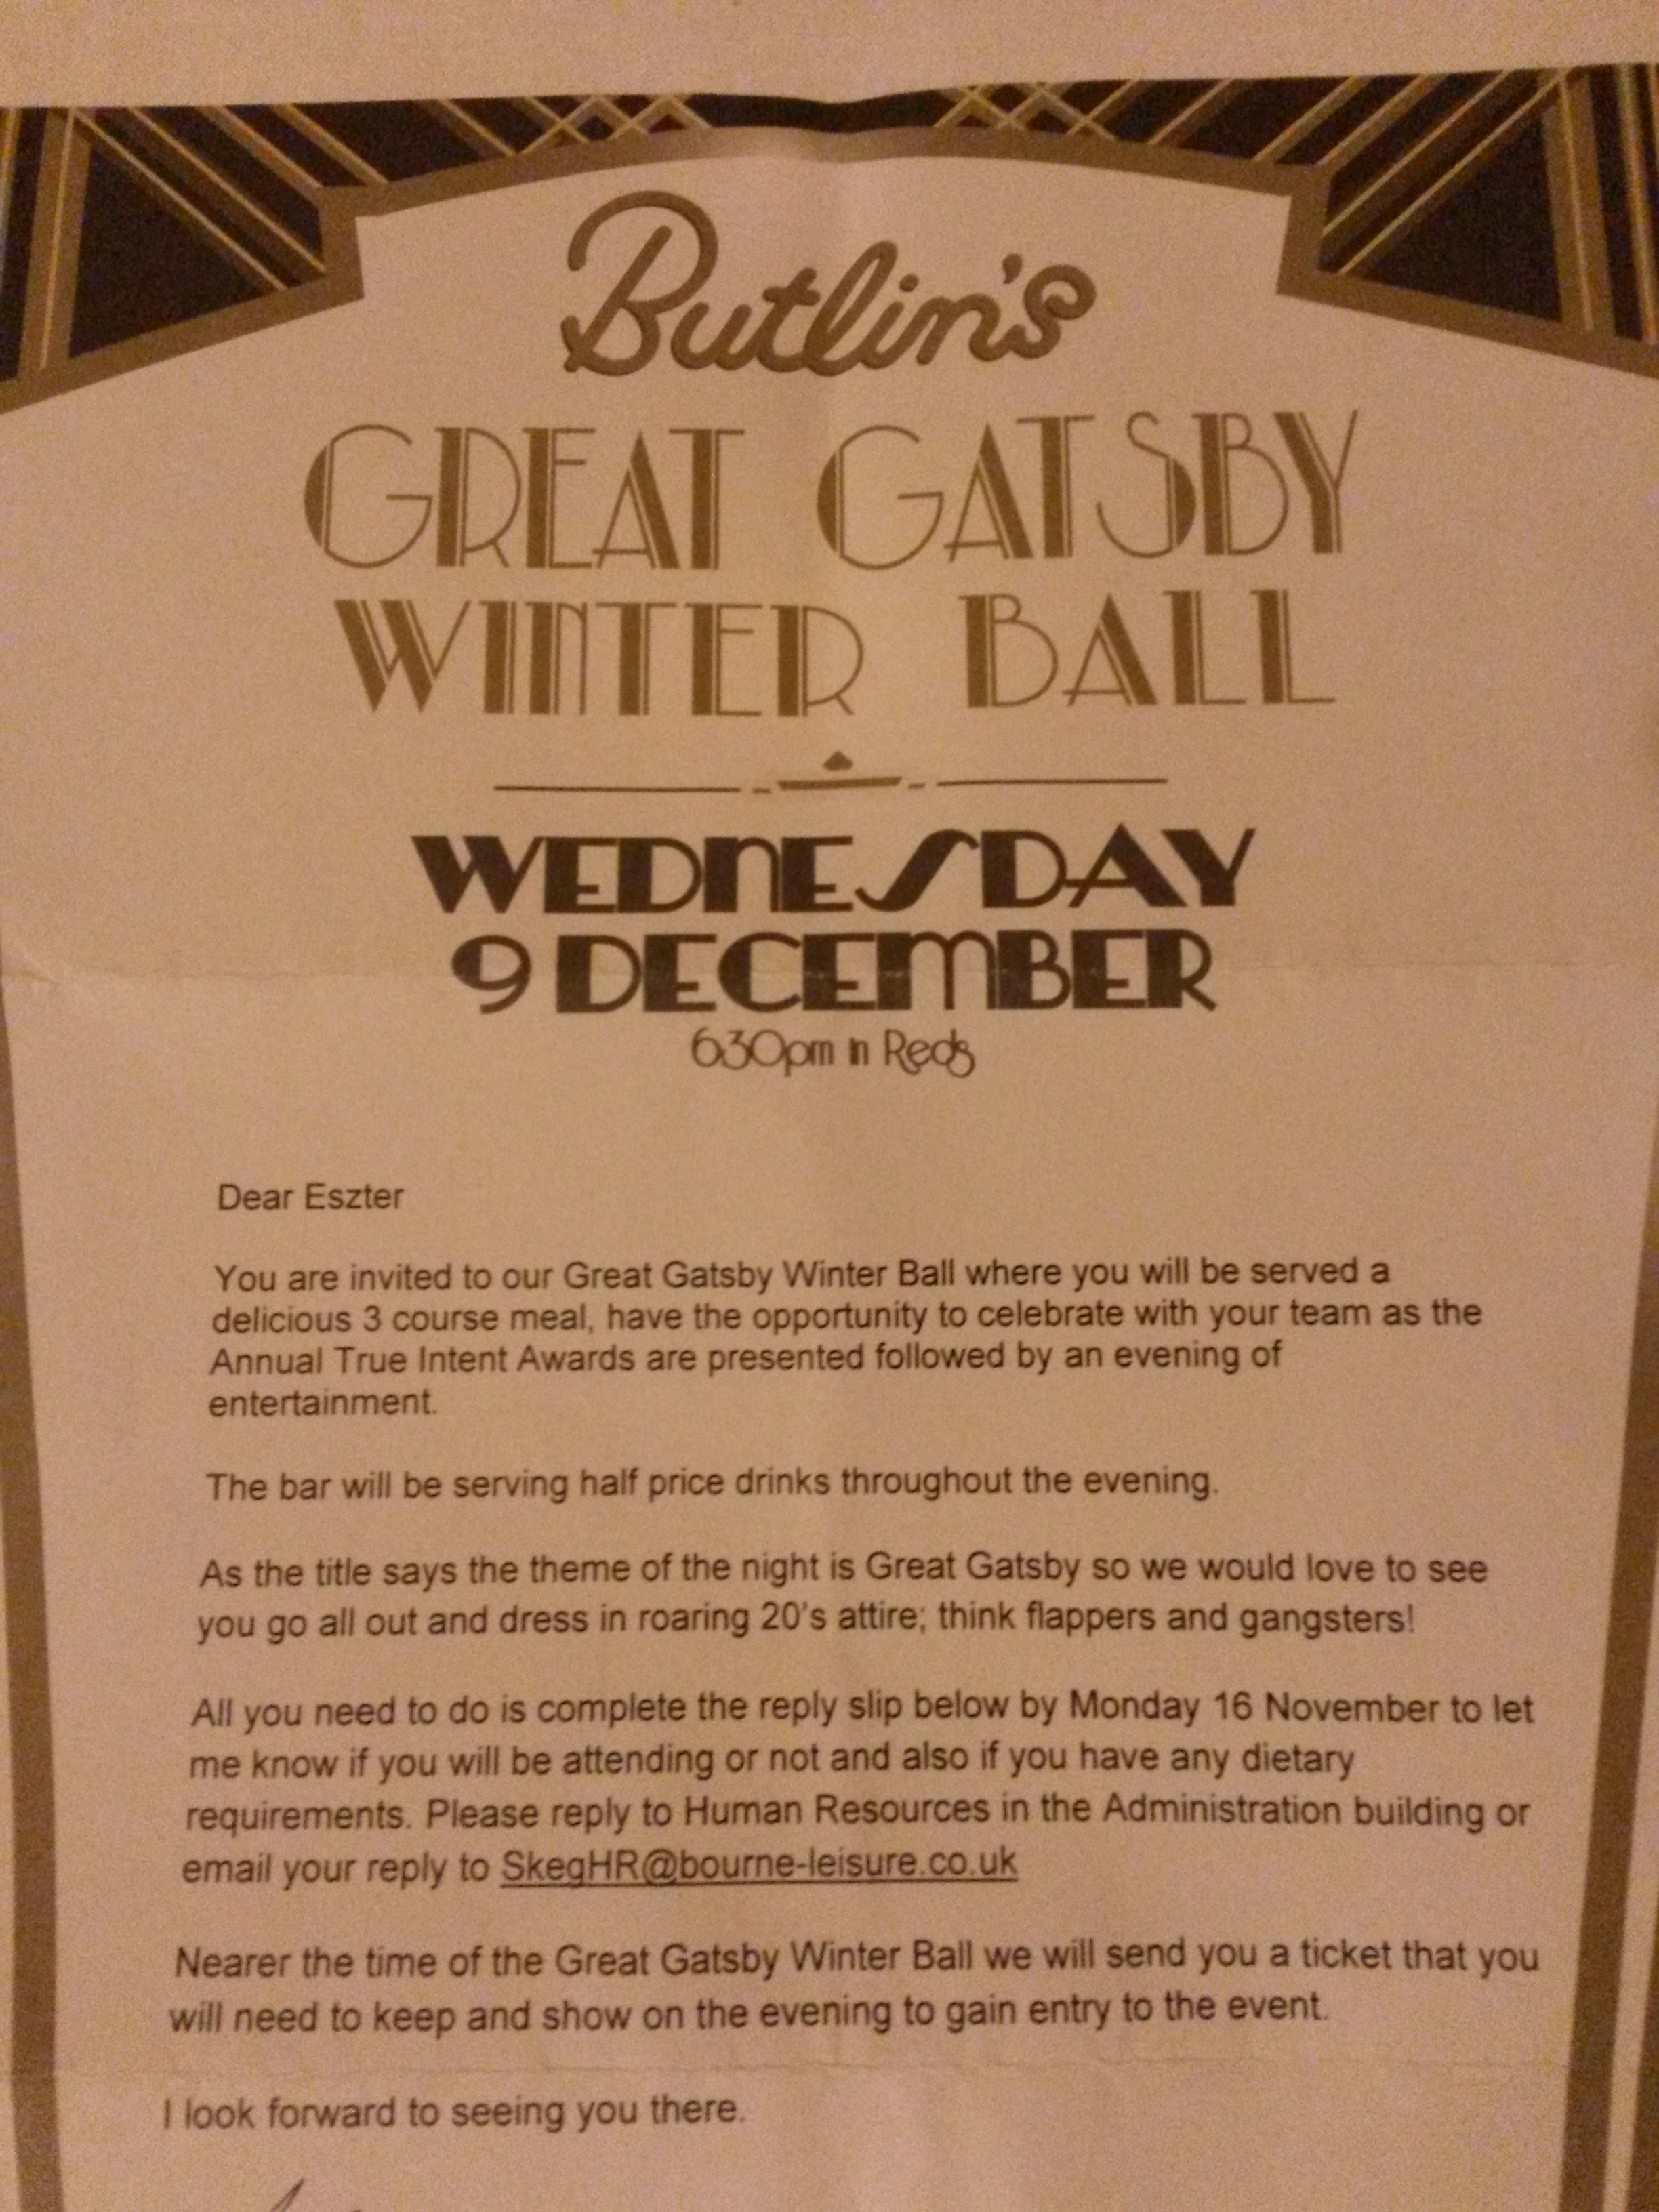 Butlin's
GREAT GATSBY
WINTER BALL
WEDNESDAY
9 DECEMBER
6:30pm in Reds
Dear Eszter
You are invited to our Great Gatsby Winter Ball where you will be served a
delicious 3 course meal, have the opportunity to celebrate with your team as the
Annual True Intent Awards are presented followed by an evening of
entertainment.
The bar will be serving half price drinks throughout the evening.
As the title says the theme of the night is Great Gatsby so we would love to see
you go all out and dress in roaring 20's attire; think flappers and gangsters!
All you need to do is complete the reply slip below by Monday 16 November to let
me know if you will be attending or not and also if you have any dietary
requirements. Please reply to Human Resources in the Administration building or
email your reply to SkegHR@bourne-leisure.co.uk
Nearer the time of the Great Gatsby Winter Ball we will send you a ticket that you
will need to keep and show on the evening to gain entry to the event.
I look forward to seeing you there.